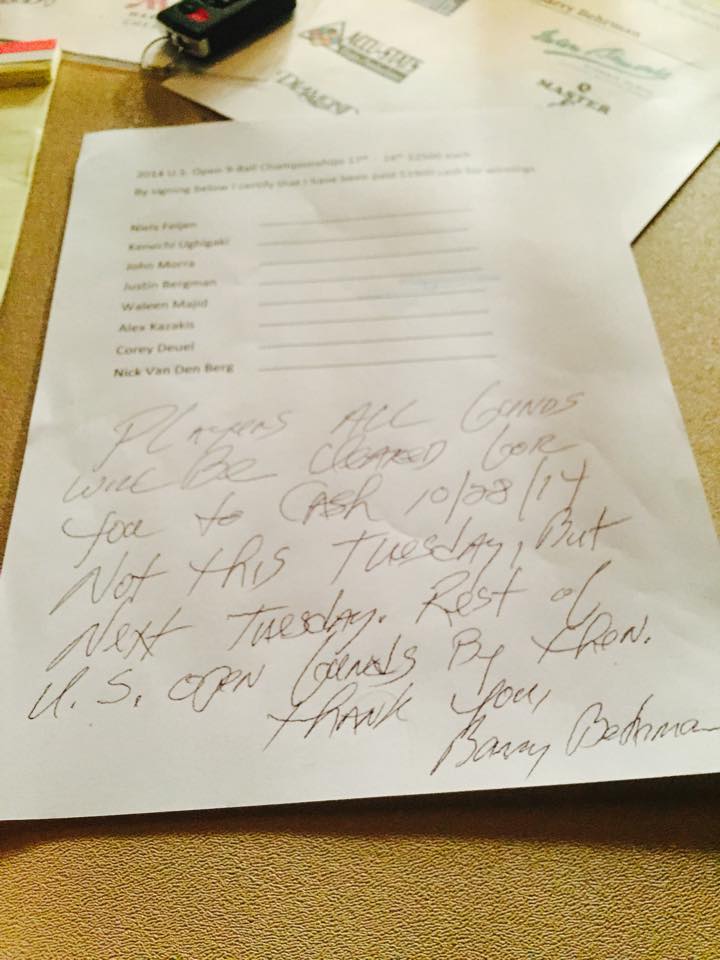 Barry Behrman
ACCU-STATS
MASTER
2014 U.S. Open 9-Ball Championships 17th - 24th $2500 each
By signing below I certify that I have been paid cash for winnings
Niels Feijen
Kenichi Uchigaki
John Morra
Justin Bergman
Waleen Majid
Alex Kazakis
Corey Deuel
Nick Van Den Berg
PLAYERS ALL FUNDS
WILL BE CLEARED FOR
You to CASH 10/28/14
Not this Tuesday, But
Next Tuesday. Rest of
U.S. open funds By then.
thANK You,
Barry Behrman